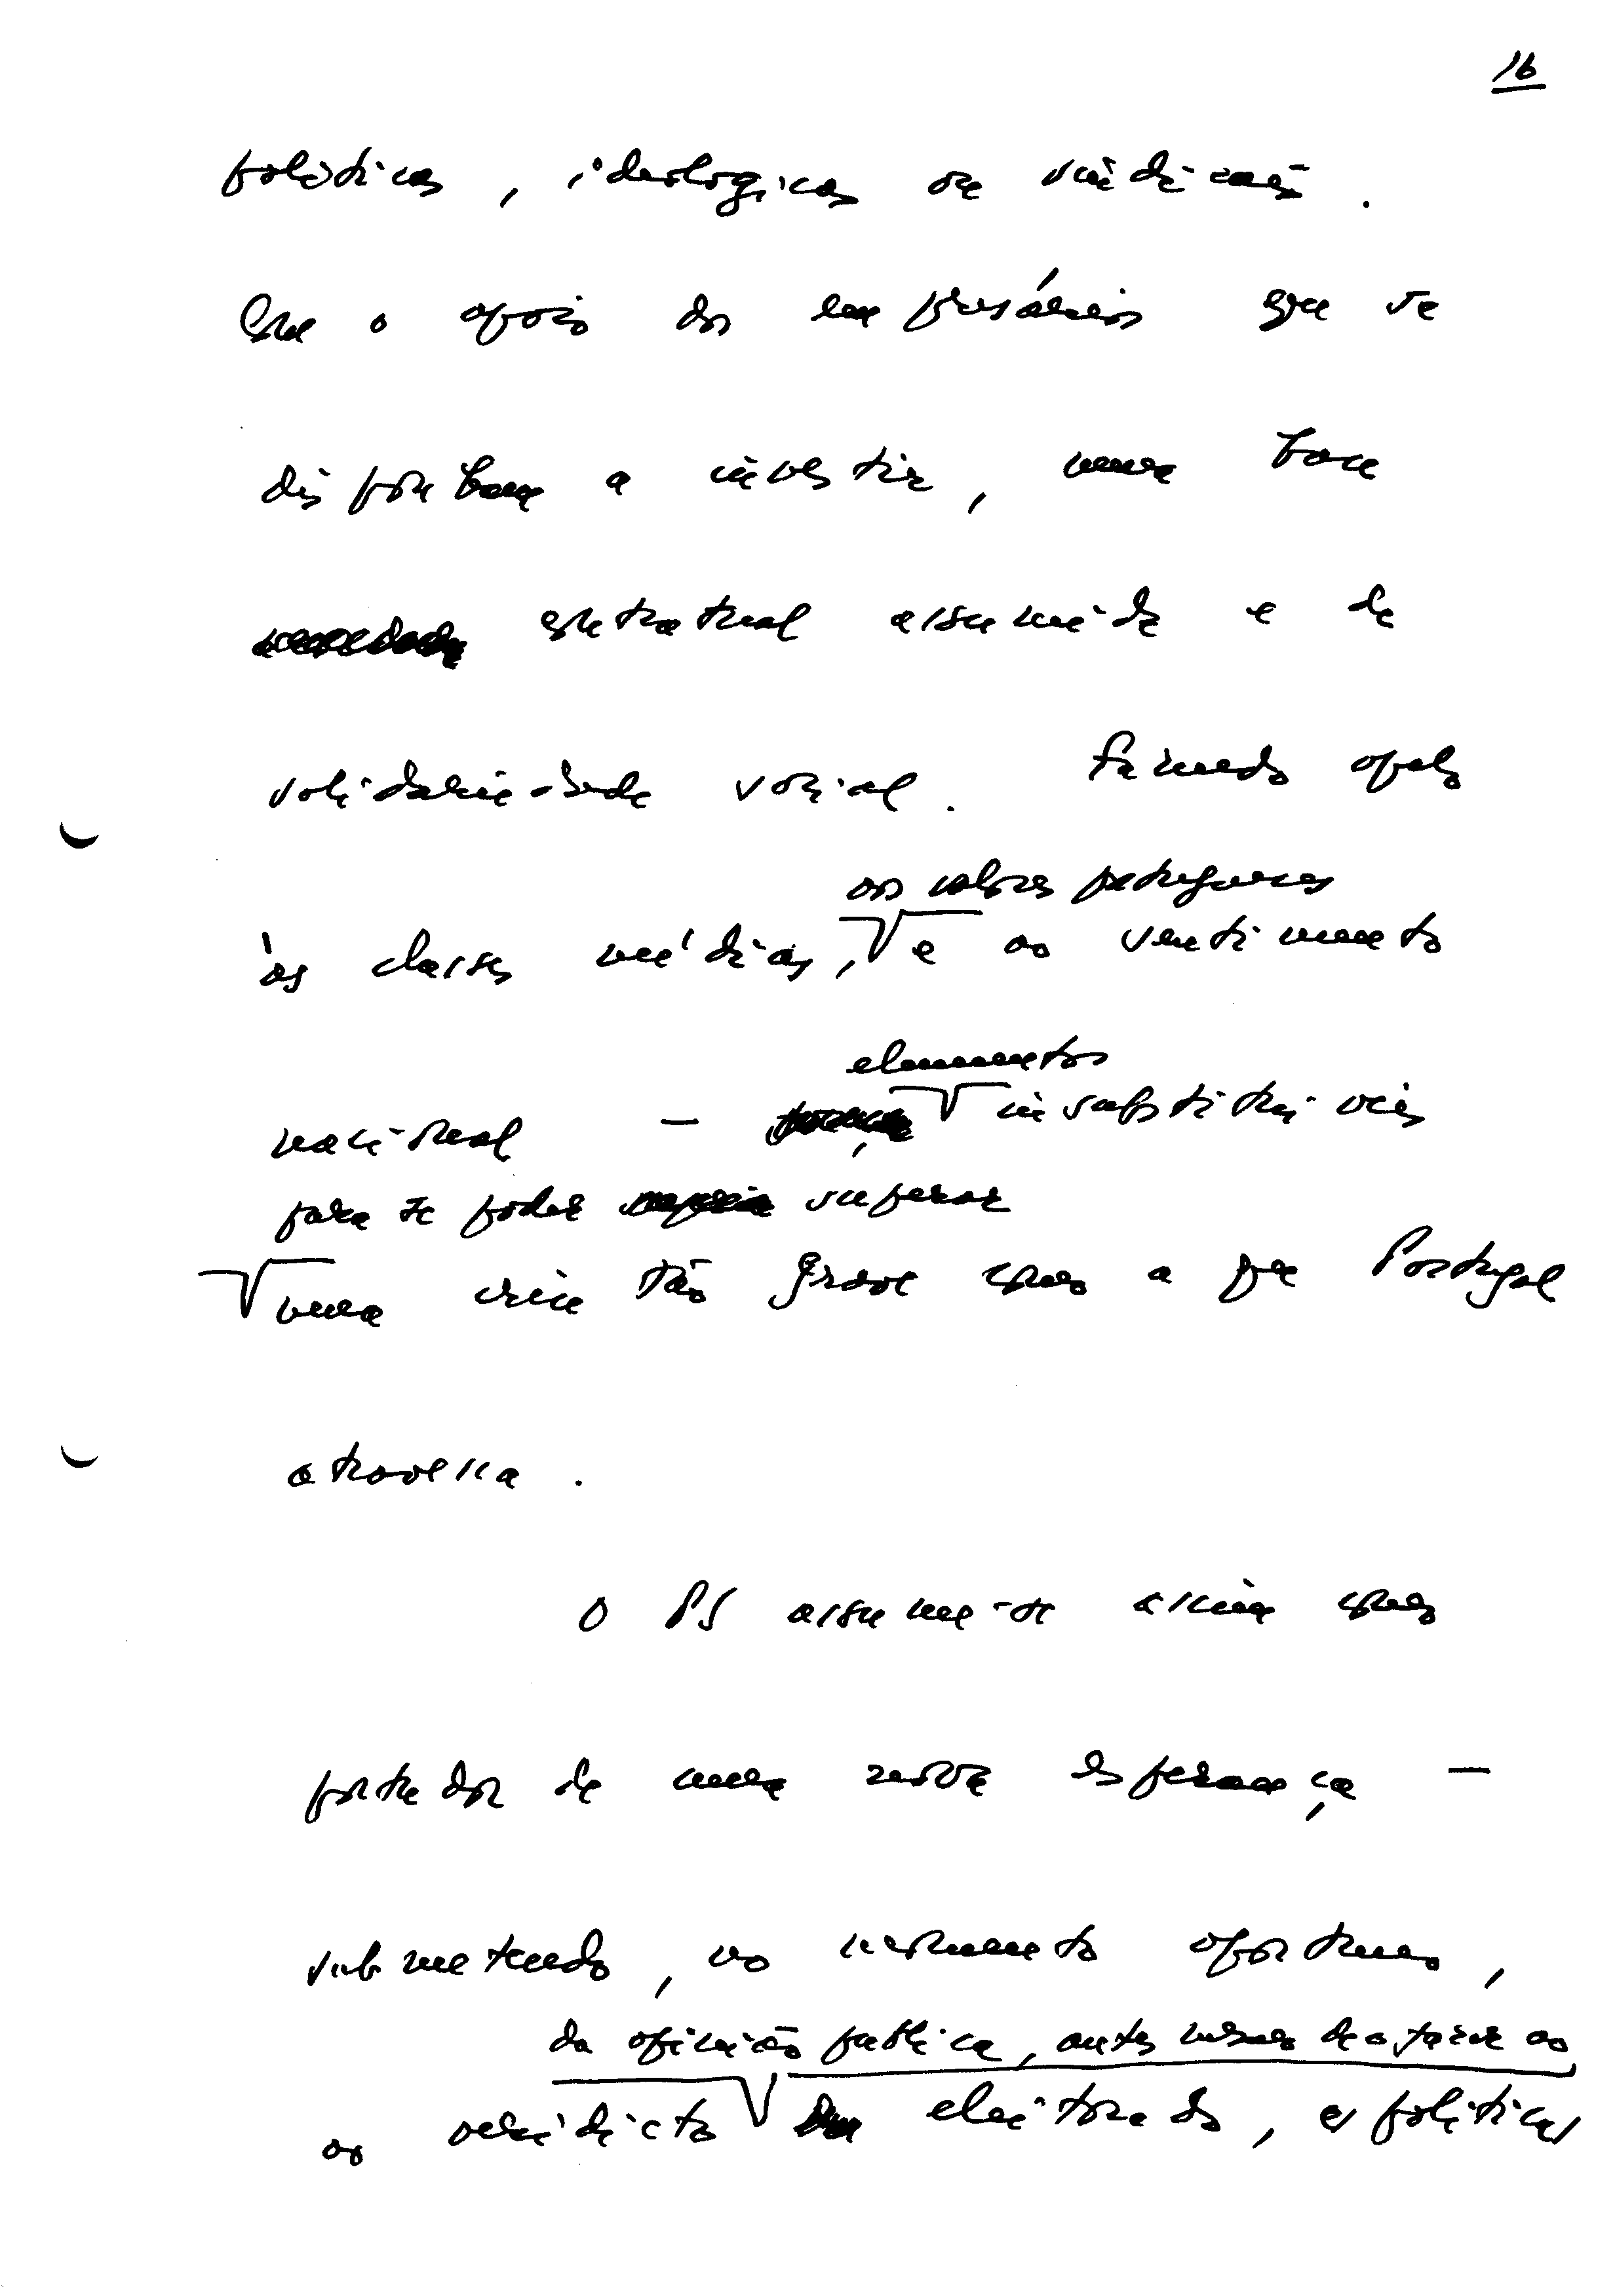 16
políticas, ideológicas ou sindicais.
Com o apoio dos empresários que se
disponham a investir, numa base
contratual assumida e de
solidariedade social. Fazendo apelo
os valores portugueses
às classes médias, e ao sentimento
elementos
nacional — insubstituíveis
para se poder superar
uma crise tão grave como a que Portugal
atravessa.
O PS assume-se assim como
portador de uma nova esperança —
submetendo, no momento oportuno,
da opinião pública, antes mesmo de o fazer ao
ao veridicto eleitorado, as políticas